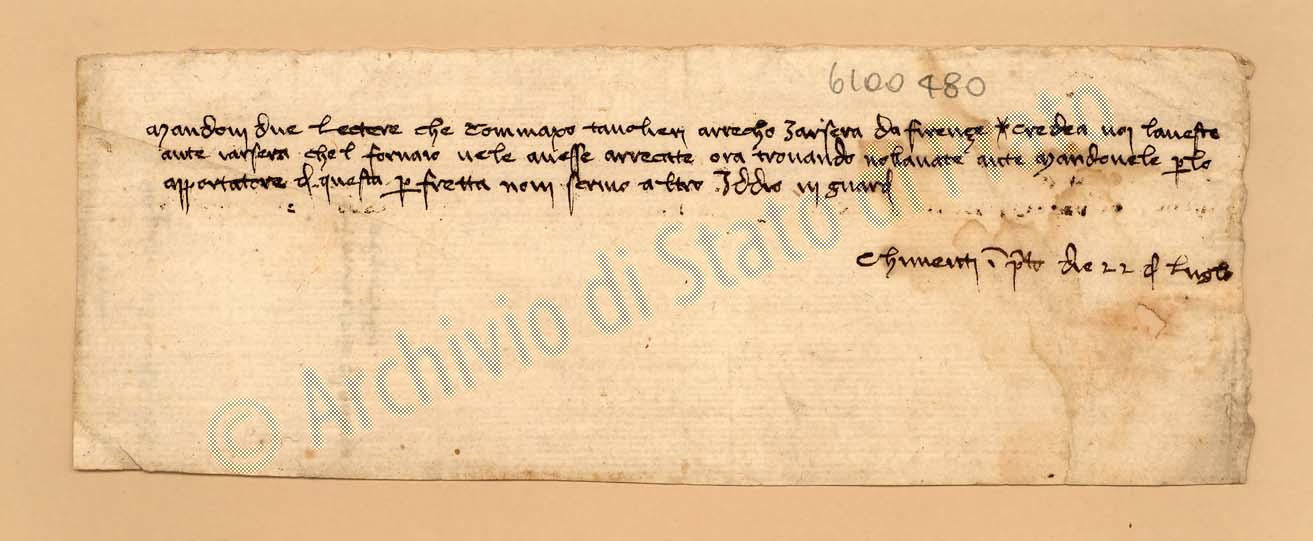 6100 480
Mandovi due lectere che Tommaxo tavolieri arrecho Iarsera da firençe & credea voi laveste
aute iarsera chel fornaio vele avesse arrecate ora trovando nolavate aute Mandovele p lo
apportatore d questa p fretta novi scrivo altro Iddio vi guard
Chimenti i pto die 22 d luglo
© Archivio di Stato di Prato